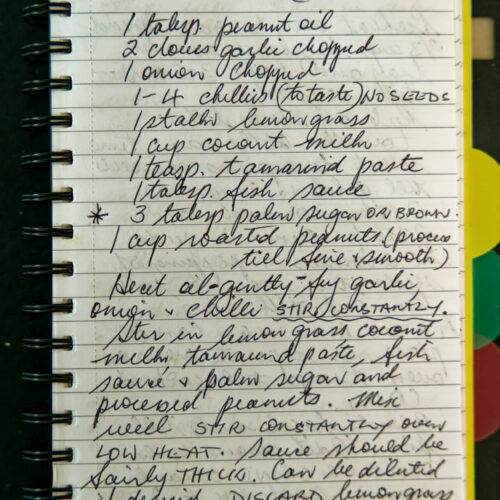 1 tablsp. peanut oil
2 cloves garlic chopped
1 onion chopped
1-4 chillies (to taste) NO SEEDS
1 stalk lemongrass
1 cup coconut milk
1 teasp. tamarind paste
1 tablsp. fish sauce
* 3 tablsp palm sugar OR BROWN.
1 cup roasted peanuts (process
till fine & smooth)
Heat oil-gently-fry garlic,
onion & chilli STIR CONSTANTLY.
Stir in lemongrass, coconut
milk, tamarind paste, fish
sauce & palm sugar and
processed peanuts. Mix
well STIR CONSTANTLY over
LOW HEAT. Sauce should be
fairly THICK. Can be diluted
if desired DISCARD lemongrass